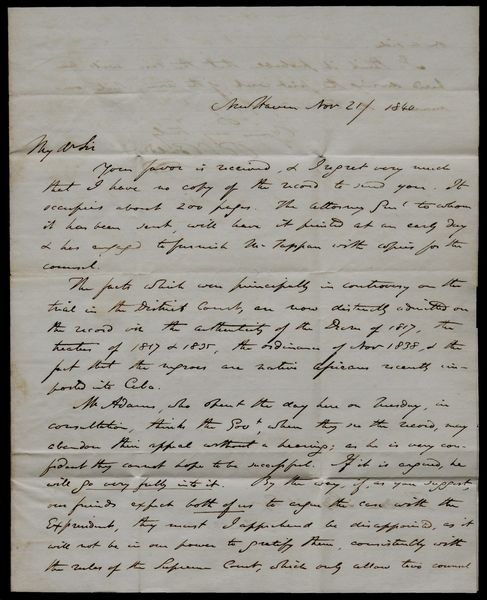 New Haven Nov 21st. 1840
My Dr Sir
Your favor is received, & I regret very much
that I have no copy of the record to send you. It
occupies about 200 pages. The Attorney Genl to whom
it has been sent, will have it printed at an early day
& has engaged to furnish Mr Tappan with copies for the
counsel.
The facts which were principally in controversy on the
trial in the District Court, are now distinctly admitted on
the record viz the authenticity of the Decree of 1817, the
treaties of 1817 & 1835, the ordinance of Nov 1838, & the
fact that the negroes are native africans recently im-
ported into Cuba.
Mr Adams, who spent the day here on Tuesday, in
consultation, thinks the Govt, when they see the record, may
abandon their appeal without a hearing; as he is very con-
fident they cannot hope to be successful. If it is argued, he
will go very fully into it. By the way, if as you suggest,
our friends expect both of us to argue the case with the
ExPresident, they must I apprehend be disappointed, as it
will not be in our power to gratify them, consistently with
the rules of the Supreme Court, which only allow two counsel